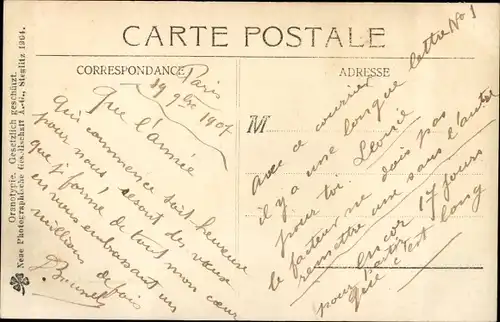 CARTE POSTALE
CORRESPONDANCE
Paris
19 9bre 1907
Que l'année
qui commence soit heureuse
pour nous! ce sont des vœux
que je forme de tout mon cœur
en vous embrassant un
million de fois
ADRESSE
M
lettre No 1
avec ce courrier
il y a une longue
pour toi Léonie
le facteur ne dois pas
remettre une sans l'autre
Encor 17 jours
pour partir
que c'est long
Oranotypie. Gesetzlich geschützt.
Neue Photographische Gesellschaft A.-G., Steglitz 1904.